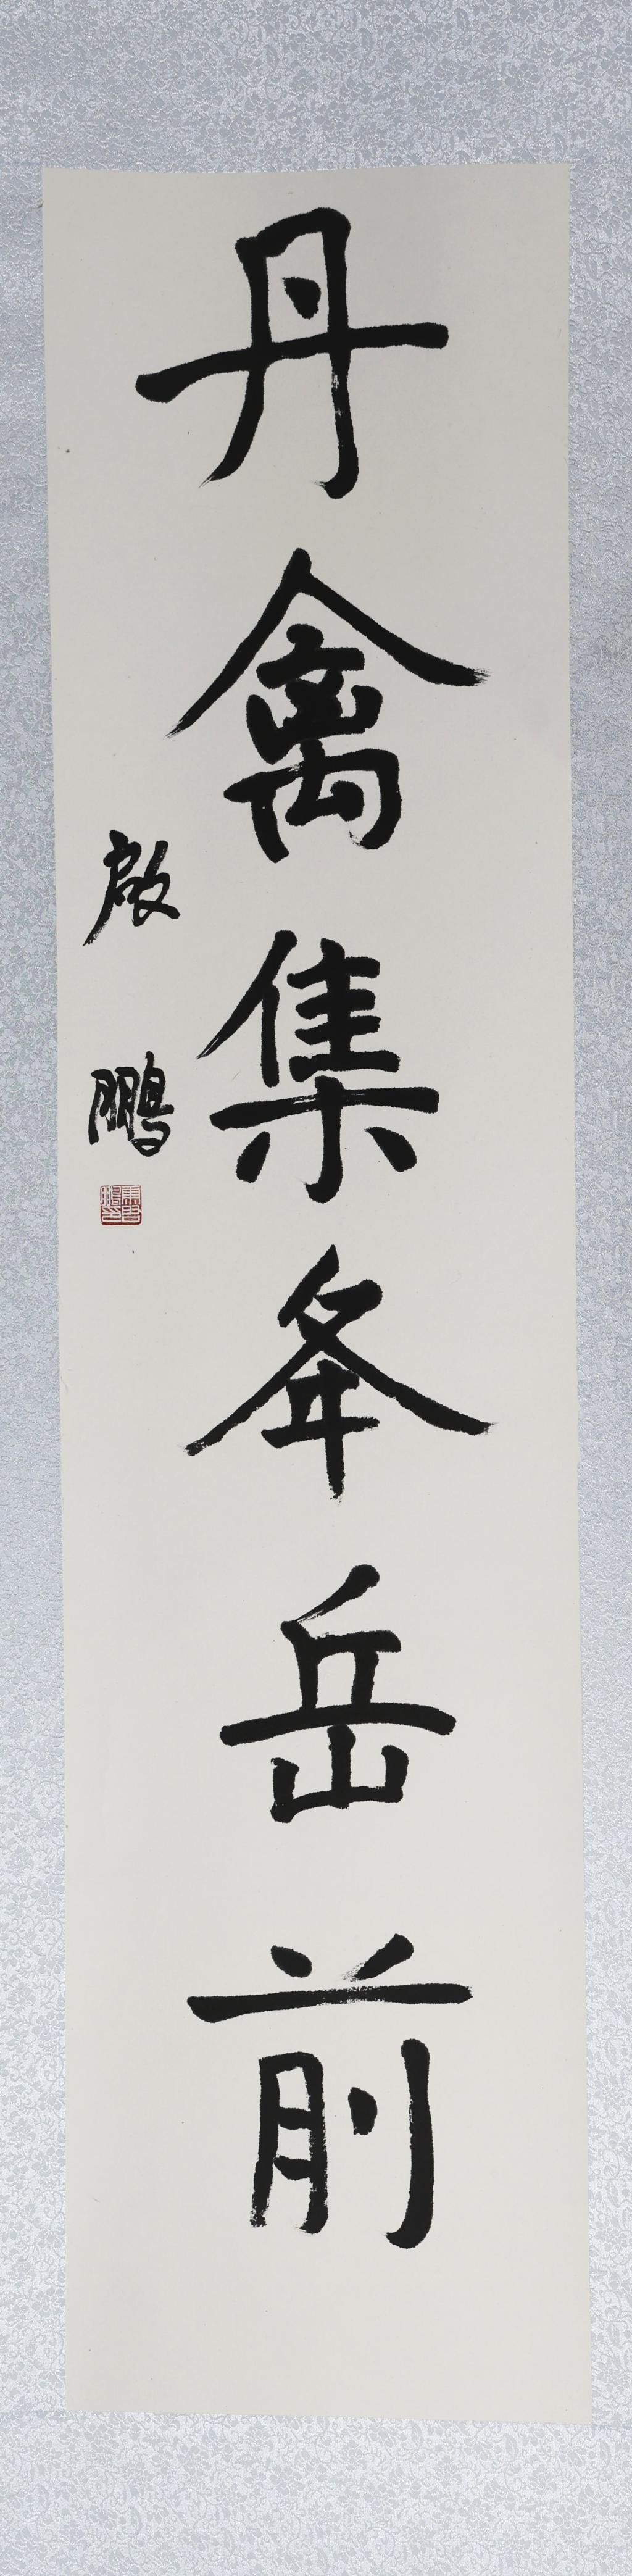 丹禽集夅岳前
啟鵬